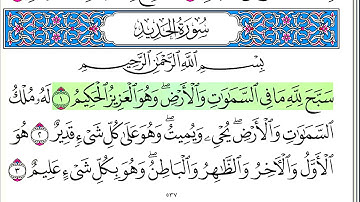 سُورَةُ الحَدِيدِ
بِسْمِ ٱللَّهِ ٱلرَّحْمَٰنِ ٱلرَّحِيمِ
سَبَّحَ لِلَّهِ مَا فِي ٱلسَّمَٰوَٰتِ وَٱلْأَرْضِۖ وَهُوَ ٱلْعَزِيزُ ٱلْحَكِيمُ ١ لَهُۥ مُلْكُ
ٱلسَّمَٰوَٰتِ وَٱلْأَرْضِۖ يُحْيِۦ وَيُمِيتُۖ وَهُوَ عَلَىٰ كُلِّ شَىْءٍ قَدِيرٌ ٢ هُوَ
ٱلْأَوَّلُ وَٱلْآخِرُ وَٱلظَّٰهِرُ وَٱلْبَاطِنُۖ وَهُوَ بِكُلِّ شَىْءٍ عَلِيمٌ ٣
٥٣٧